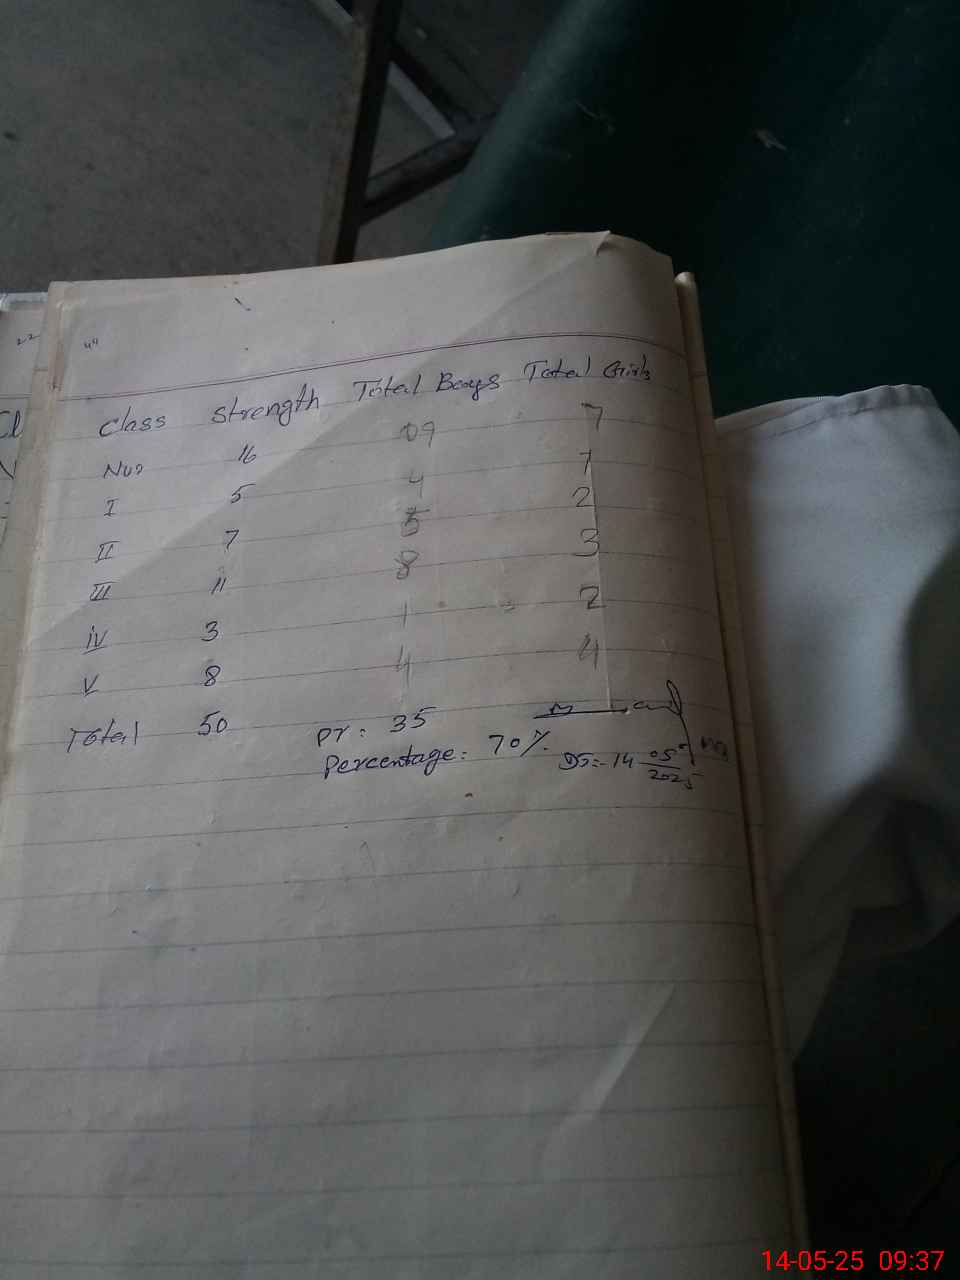 Class Strength Total Boys Total Girls
Nur 16 09 7
I 5 4 1
II 7 5 2
III 11 8 3
iv 3 1 2
V 8 4 4
Total 50 Pr: 35
Percentage: 70%
14 05 2025
14-05-25 09:37